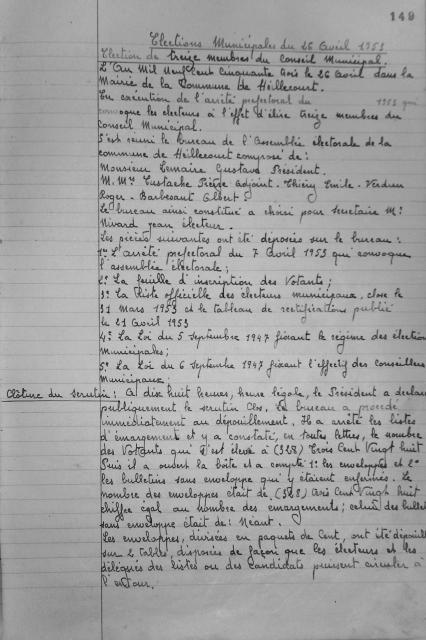 149
Elections Municipales du 26 Avril 1953
Election de treize membres du Conseil Municipal.
L'An Mil Neuf Cent Cinquante trois le 26 Avril dans la
Mairie de la Commune de Heillecourt.
En exécution de l'arrêté prefectoral du 1953 qui
convoque les électeurs à l'effet d'élire treize membres du
Conseil Municipal.
S'est réuni le bureau de l'Assemblée électorale de la
commune de Heillecourt composé de :
Monsieur Lemaire Gustave Président.
M. Mrs Eustache Adjoint - Thiéry Emile - Verdun
Roger - Barbesant Albert -
Le bureau ainsi constitué a choisi pour secrétaire Mr
Nivard Jean électeur.
Les pièces suivantes ont été déposées sur le bureau :
1º L'arrêté prefectoral du 7 Avril 1953 qui convoque
l'assemblée électorale ;
2º La feuille d'inscription des Votants ;
3º La liste officielle des électeurs municipaux, close le
31 mars 1953 et le tableau de rectifications publié
le 21 Avril 1953
4º La Loi du 5 septembre 1947 fixant le régime des élections
Municipales ;
5º La Loi du 6 septembre 1947 fixant l'effectif des conseillers
Municipaux.
Clôture du scrutin : A dix huit heures, heure légale, le Président a déclaré
publiquement le scrutin Clos. Le bureau a procédé
immédiatement au dépouillement. Il a arrêté les listes
d'émargement et y a constaté, en toutes lettres, le nombre
des Votants qui s'est élevé à (328) Trois Cent Vingt huit
Puis il a ouvert la boîte et a compté 1º les enveloppes et 2º
les bulletins sans enveloppe qui y étaient enfermés. Le
nombre des enveloppes était de (328) trois Cent Vingt huit
chiffre égal au nombre des émargements ; celui des bulletins
sans enveloppe était de : Néant.
Les enveloppes, divisées en paquets de Cent, ont été dépouillées
sur 2 tables, disposées de façon que les électeurs et les
délégués des listes ou des Candidats puissent circuler à
l'entour.